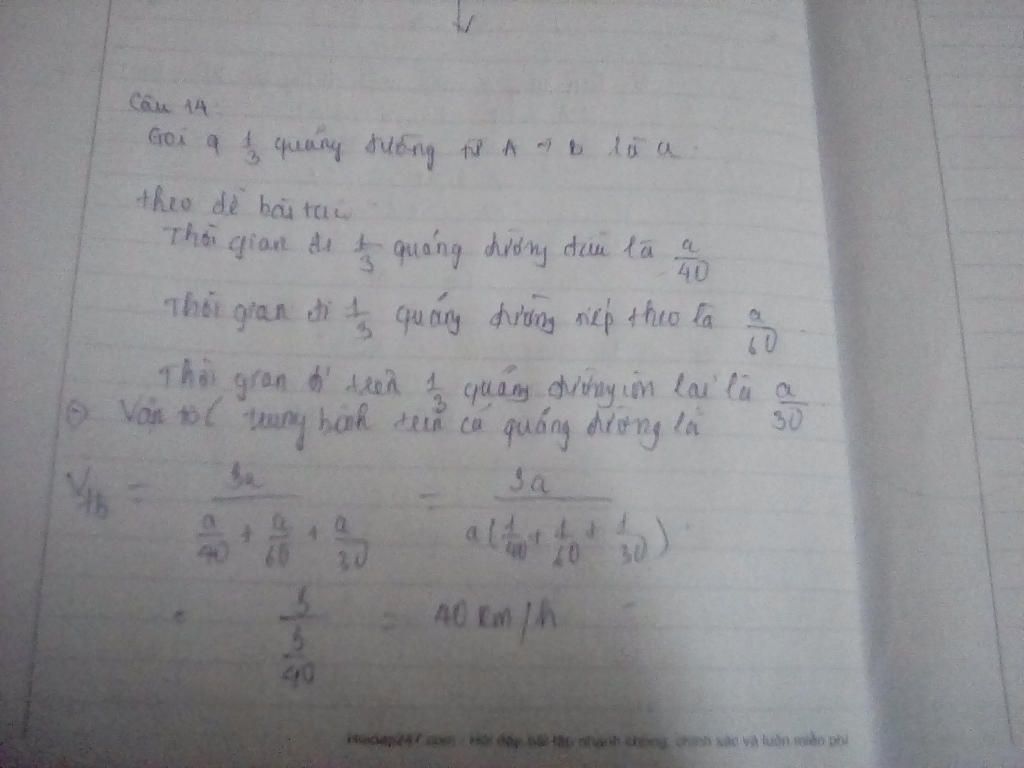 Câu 14
Gọi 9 1/3 quãng đường từ A → B là a.
theo đề bài ta có
Thời gian đi 1/3 quãng đường đầu là a/40
Thời gian đi 1/3 quãng đường tiếp theo là a/60
Thời gian đi trên 1/3 quãng đường còn lại là a/30
Vận tốc trung bình trên cả quãng đường là
Vtb = 3a / (a/40 + a/60 + a/30) = 3a / a(1/40 + 1/60 + 1/30)
= 3 / (3/40) = 40 km/h
Hoidap247.com - Hỏi đáp bài tập nhanh chóng, chính xác và luôn miễn phí